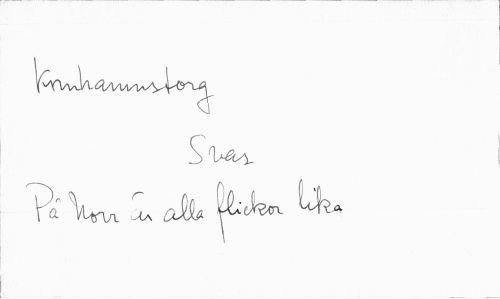 Kornhamnstorg
Svas
På Norr är alla flickor lika